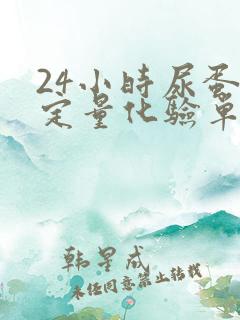 24小时尿蛋
定量化验单
韩星成
未经同意禁止转载